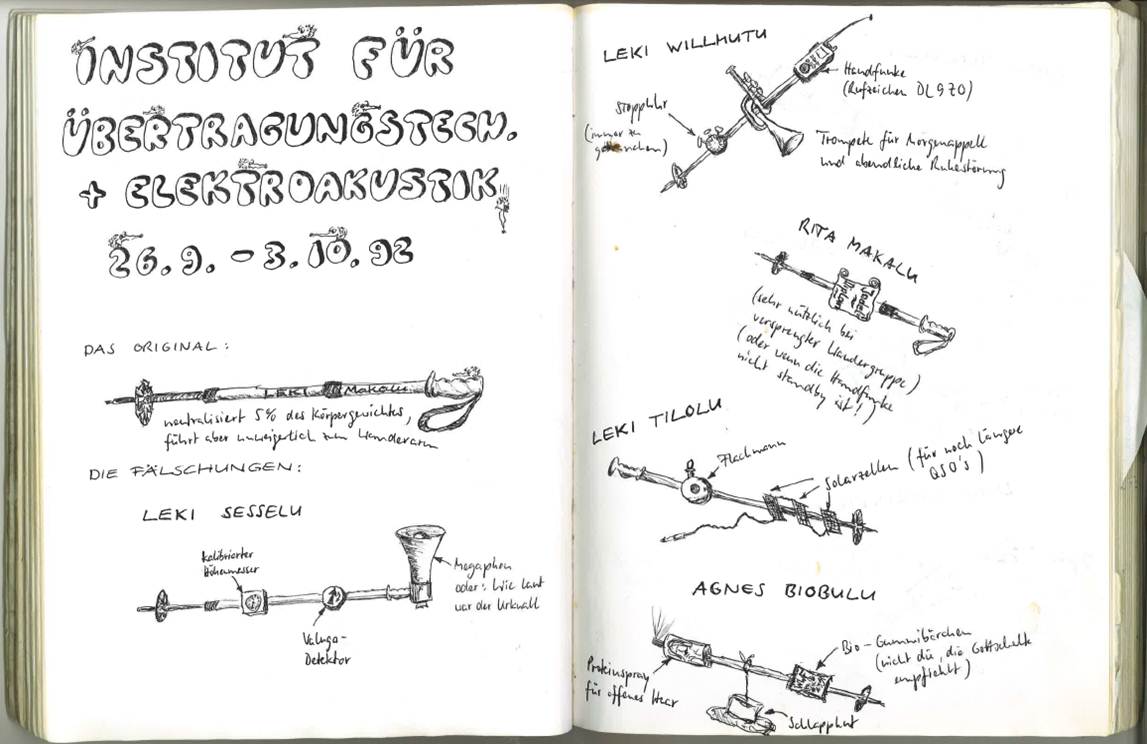 INSTITUT FÜR
ÜBERTRAGUNGSTECH.
+ ELEKTROAKUSTIK
26.9. – 3.10.92
DAS ORIGINAL:
LEKI Makalu
neutralisiert 5% des Körpergewichtes,
führt aber unweigerlich zum Wanderarm
DIE FÄLSCHUNGEN:
LEKI SESSELU
Kalibrierter
Höhenmesser
Megaphon
oder: Wie laut
war der Urknall
Valuga-
Detektor
LEKI WILLMUTU
Handfunke
(Rufzeichen DL9ZO)
Stoppuhr
(immer zu
gebrauchen)
Trompete für Morgenappell
und abendliche Ruhestörung
RITA MAKALU
Jodel
Diplom
(sehr nützlich bei
versprengter Wandergruppe)
(oder wenn die Handfunke
nicht standby ist!)
LEKI TILOLU
Flachmann
Solarzellen (für noch längere
QSO's)
AGNES BIOBULU
Proteinspray
für offenes Haar
Bio-Gummibärchen
(nicht die, die Gottschalk
empfiehlt)
Schlapphut